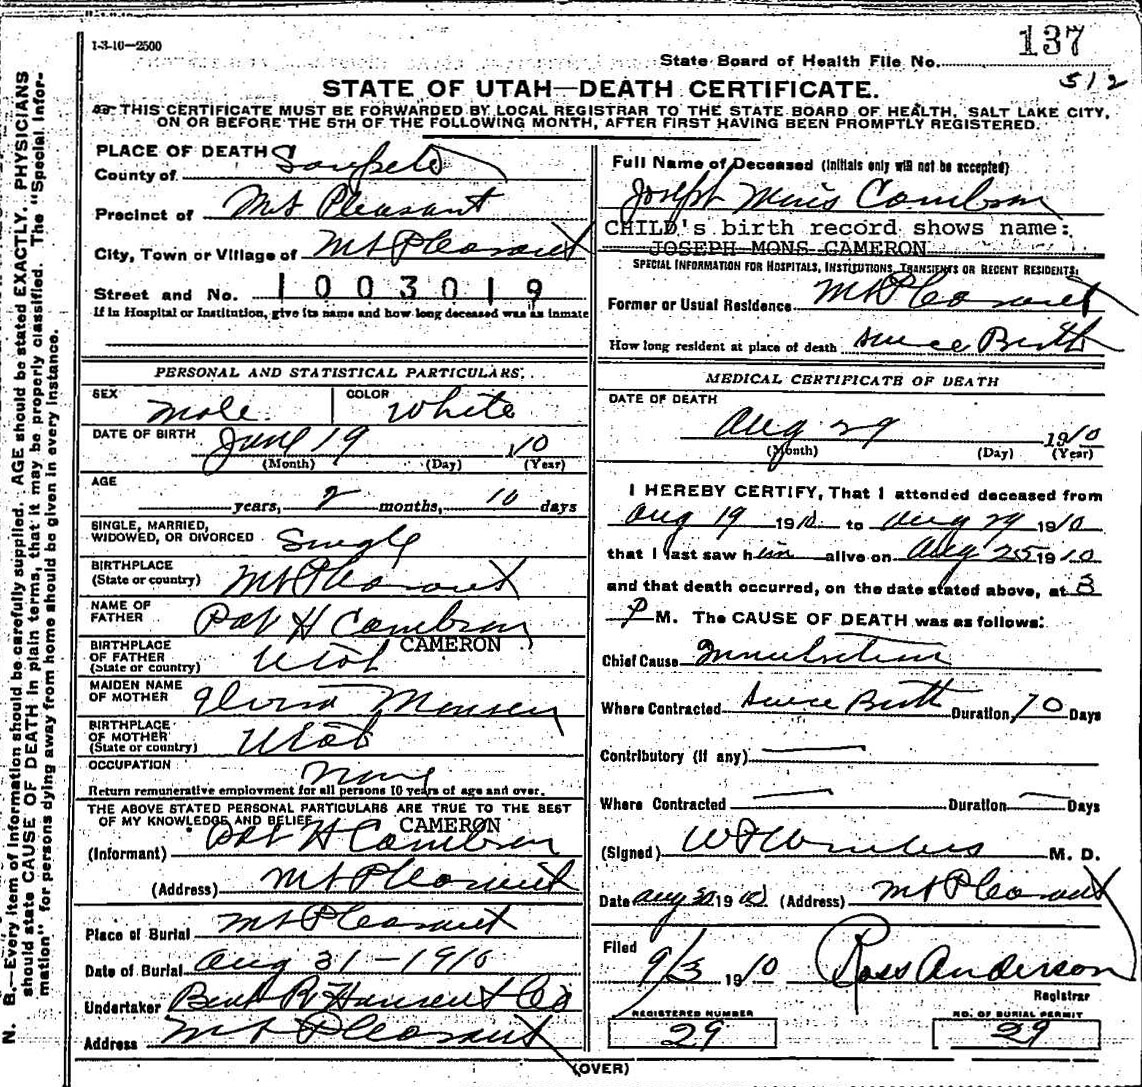 1-3-10—2500
137
State Board of Health File No.
512
STATE OF UTAH—DEATH CERTIFICATE.
THIS CERTIFICATE MUST BE FORWARDED BY LOCAL REGISTRAR TO THE STATE BOARD OF HEALTH, SALT LAKE CITY,
ON OR BEFORE THE 5TH OF THE FOLLOWING MONTH, AFTER FIRST HAVING BEEN PROMPTLY REGISTERED.
N. B.—Every item of information should be carefully supplied. AGE should be stated EXACTLY. PHYSICIANS
should state CAUSE OF DEATH in plain terms, that it may be properly classified. The "Special Infor-
mation" for persons dying away from home should be given in every instance.
PLACE OF DEATH
County of Sanpete
Precinct of Mt Pleasant
City, Town or Village of Mt Pleasant
Street and No. 1003019
If in Hospital or Institution, give its name and how long deceased was as inmate
PERSONAL AND STATISTICAL PARTICULARS.
SEX Male COLOR White
DATE OF BIRTH June 19 10
(Month) (Day) (Year)
AGE
years, 2 months, 10 days
SINGLE, MARRIED,
WIDOWED, OR DIVORCED Single
BIRTHPLACE
(State or country) Mt Pleasant
NAME OF
FATHER H Cambron
CAMERON
BIRTHPLACE
OF FATHER
(State or country) Utah
MAIDEN NAME
OF MOTHER Monsen
BIRTHPLACE
OF MOTHER
(State or country) Utah
OCCUPATION None
Return remunerative employment for all persons 10 years of age and over.
THE ABOVE STATED PERSONAL PARTICULARS ARE TRUE TO THE BEST
OF MY KNOWLEDGE AND BELIEF
CAMERON
(Informant) H Cambron
(Address) Mt Pleasant
Place of Burial Mt Pleasant
Date of Burial Aug 31-1910
Undertaker Bent R Hansen & Co
Address Mt Pleasant
Full Name of Deceased (Initials only will not be accepted)
Joseph Cambron
CHILD's birth record shows name:
JOSEPH MONS CAMERON
SPECIAL INFORMATION FOR HOSPITALS, INSTITUTIONS, TRANSIENTS OR RECENT RESIDENTS.
Former or Usual Residence Mt Pleasant
How long resident at place of death since Birth
MEDICAL CERTIFICATE OF DEATH
DATE OF DEATH
Aug 29 1910
(Month) (Day) (Year)
I HEREBY CERTIFY, That I attended deceased from
Aug 19 1910 to Aug 29 1910
that I last saw him alive on Aug 25 1910
and that death occurred, on the date stated above, at 3
P M. The CAUSE OF DEATH was as follows:
Chief Cause
Where Contracted Since Birth Duration 70 Days
Contributory (if any)
Where Contracted Duration Days
(Signed) M. D.
Date Aug 30 1910 (Address) Mt Pleasant
Filed
9/3 1910 Ross Anderson
Registrar
REGISTERED NUMBER
29
NO. OF BURIAL PERMIT
29
(OVER)